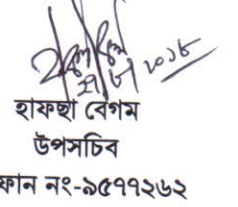 ২০১৮
হাফছা বেগম
উপসচিব
ফোন নং-৯৫৭৭২৬২